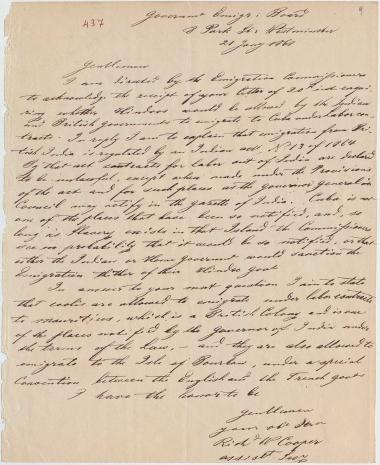 437
9
Government Emigr: Board
8 Park St: Westminster
21 Jany 1868
Gentlemen
I am directed by the Emigration Commissioners
to acknowledge the receipt of your letter of 20th inst enqui-
ring whether Hindoos would be allowed by the Indian
and British governments to emigrate to Cuba under labor con-
tracts. In reply I am to explain that emigration from Bri-
tish India is regulated by an Indian act, No 13 of 1864
By that act contracts for labor out of India are declared
to be unlawful, except when made under the Provisions
of the act and for such places as the governor general in
Council may notify in the gazette of India. Cuba is not
one of the places that have been so notified, and, so
long as Slavery exists in that Island the Commissioners
see no probability that it would be so notified, or that
either the Indian or Home government would sanction the
Emigration thither of
In answer to your next question I am to state
that coolies are allowed to emigrate under labor contracts
to Mauritius, which is a British Colony and is one
of the places notified by the governor of India under
the terms of the Law, – and they are also allowed to
emigrate to the Isle of Bourbon, under a special
Convention between the English and the French govts
I have the honor to be
Gentlemen
your obt Serv
Richd W Cooper
assist Secy